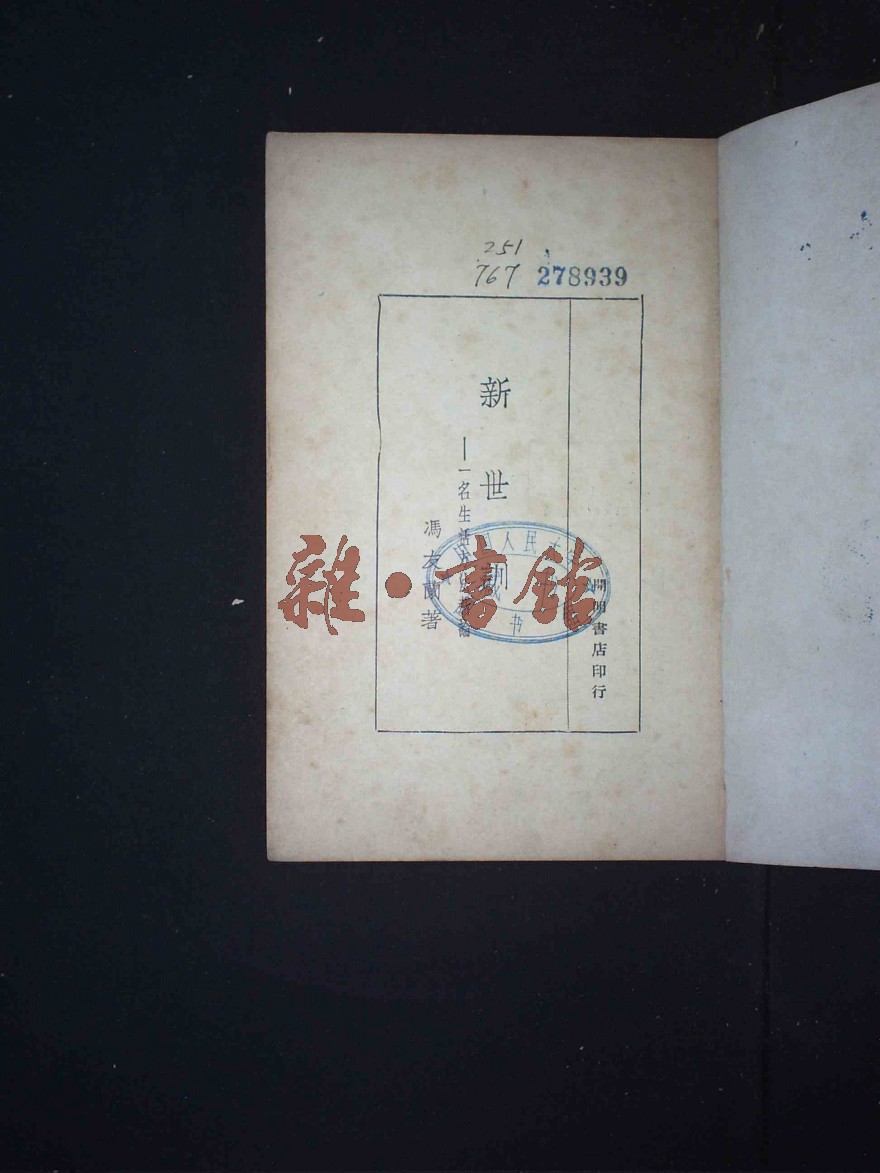 251
767 278939
新世訓
一名生活方法新論
馮友蘭著
開明書店印行
人民
书
雜·書館